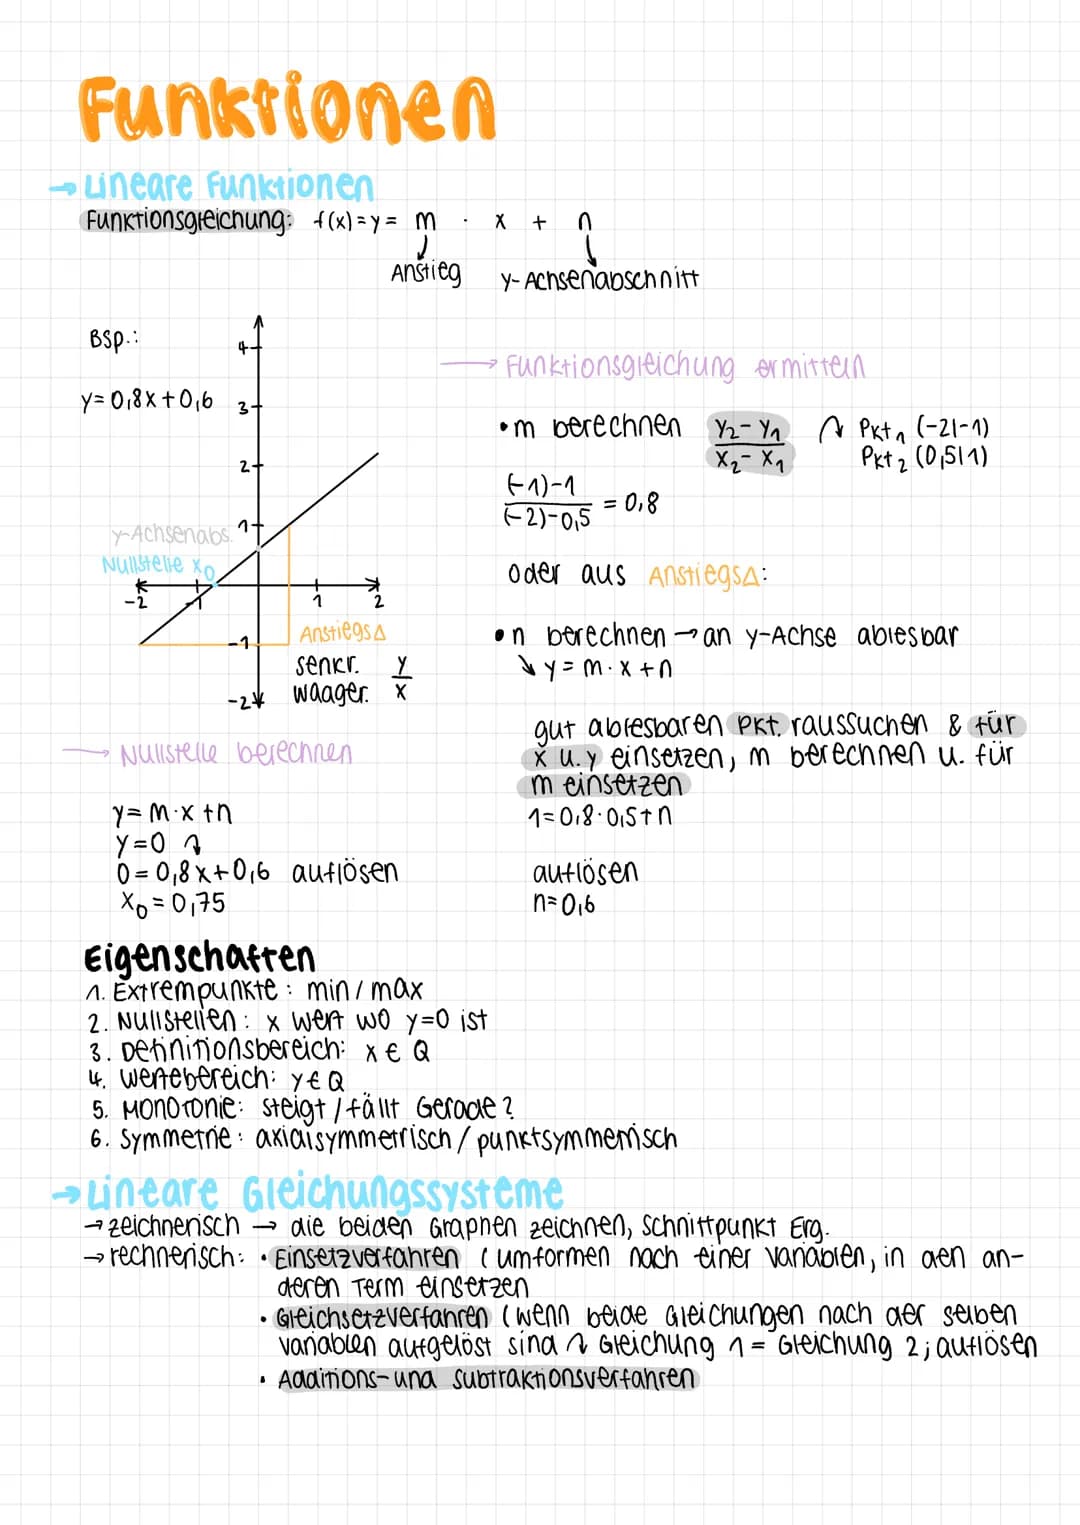 Funktionen
→ Lineare Funktionen
Funktionsgleichung: f(x) = y = m · x + n
Anstieg y-Achsenabschnitt
Bsp.:
y= 0,8x+0,6
4
3
2
1
y-Achsenabs.
Nullstelle x₀
-2 -1 1 2
-1
-2
Anstiegs∆
senkr. y
waager. x
→ Funktionsgleichung ermitteln
• m berechnen y₂ - y₁ / x₂ - x₁ Pkt₁ (-2|-1)
Pkt₂ (0,5|1)
(-1)-1 / (-2)-0,5 = 0,8
oder aus Anstiegs∆:
• n berechnen → an y-Achse ablesbar
↘ y = m · x + n
gut ablesbaren Pkt. raussuchen & für
x u. y einsetzen, m berechnen u. für
m einsetzen
1=0,8·0,5+n
auflösen
n=0,6
→ Nullstelle berechnen
y= m·x +n
y=0
0=0,8x+0,6 auflösen
x₀ = 0,75
Eigenschaften
1. Extrempunkte: min / max
2. Nullstellen: x wert wo y=0 ist
3. Definitionsbereich: x ∈ Q
4. Wertebereich: y ∈ Q
5. Monotonie: steigt / fällt Gerade?
6. Symmetrie: axialsymmetrisch / punktsymmetrisch
→ Lineare Gleichungssysteme
→ zeichnerisch → die beiden Graphen zeichnen, Schnittpunkt Erg.
→ rechnerisch: • Einsetzverfahren (umformen nach einer Variablen, in den an-
deren Term einsetzen
• Gleichsetzverfahren (wenn beide Gleichungen nach der selben
Variablen aufgelöst sind Gleichung 1 = Gleichung 2; auflösen
• Additions- und Subtraktionsverfahren